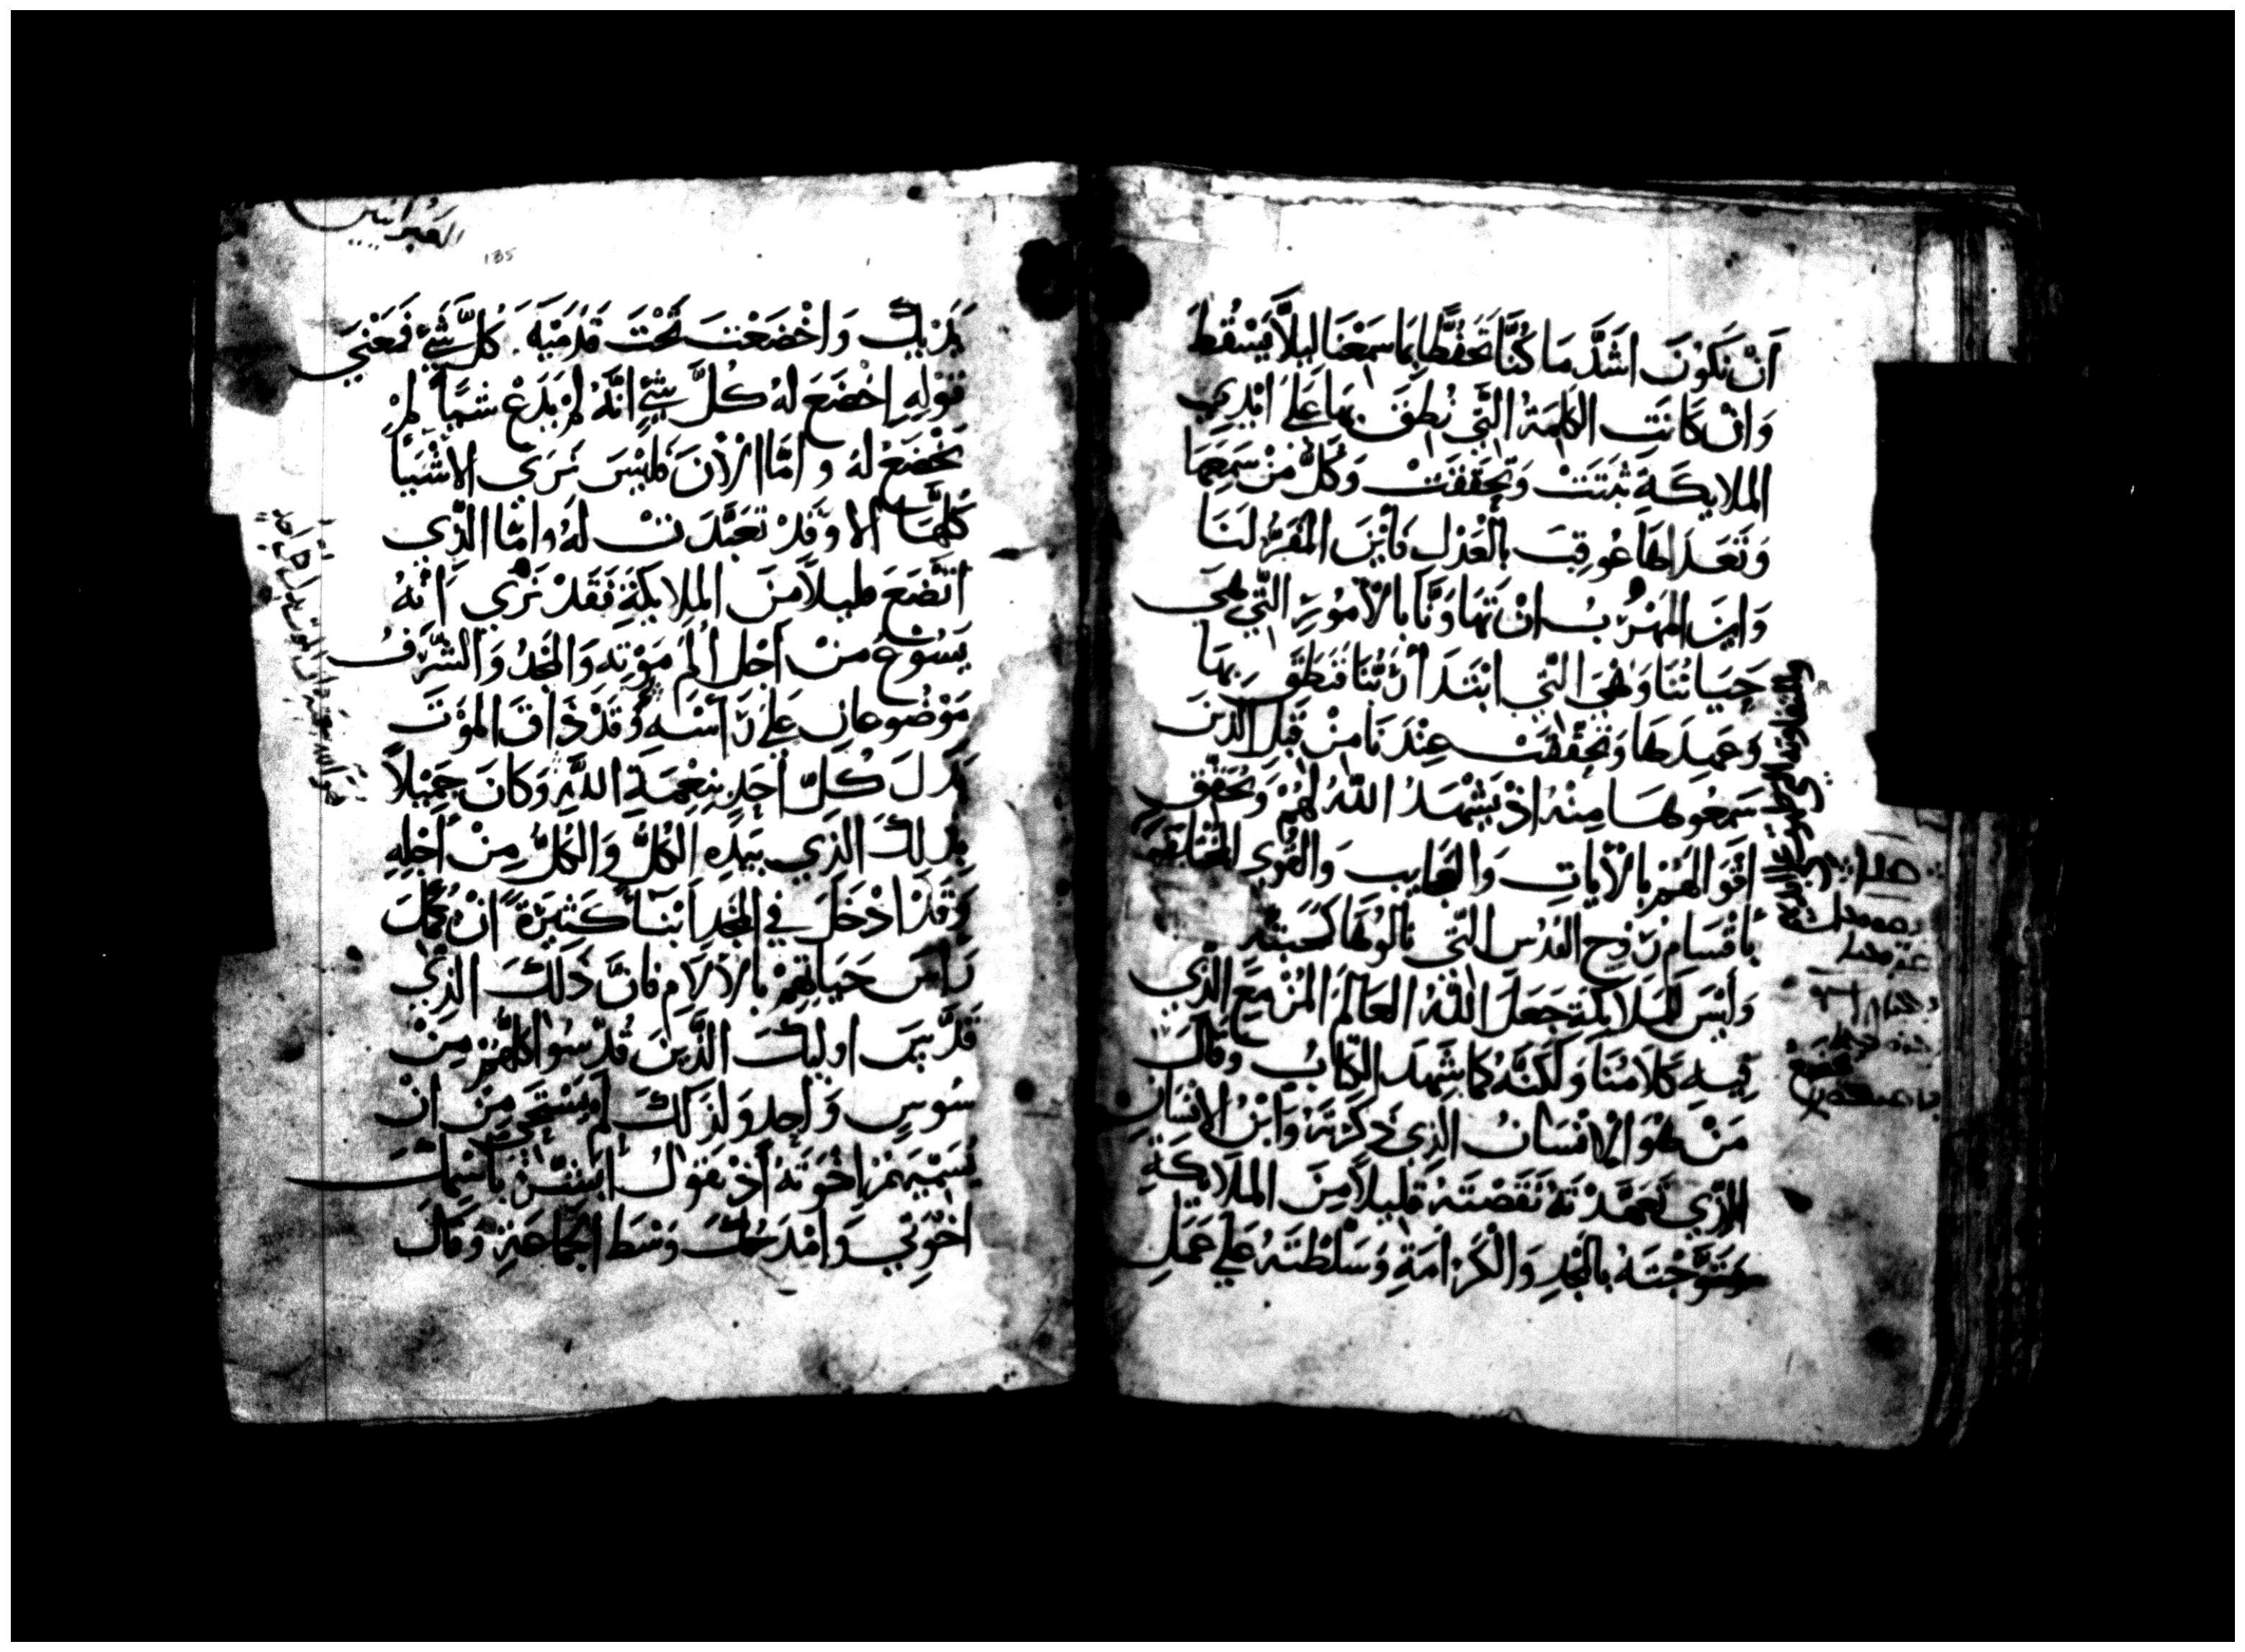 اَنْ نَكُونَ اَشَدَّ مَا كُنَّا تَحَفُّظًا بِمَا سَمِعْنَا لِيَلَّا يَسْقُطَ
وَانْ كَانَتِ الكَلِمَةُ الَّتِي نُطِقَ بِهَا عَلَى اَيْدِي
الملايكَةِ ثَبَتَتْ وَتَحَقَقَتْ وَكُلُّ مَنْ سَمِعَهَا
وَتَعَدَاهَا عُوقِبَ بِالْعَدْلِ فَاَيْنَ المَفَرُّ لَنَا
وَايْنَ المَهْرَبُ انْ تَهَاوَنَّا بِالْاُمُورِ الَّتِي هِيَ
حَيَاتُنَا وَهِيَ الَّتِي ابْتَدَا رَبُّنَا فَنَطَقَ بِهَا
وَعَمِدَهَا وَتَحَقَقَتْ عِنْدَنَا مِنْ قِبَلِ الَّذِينَ
سَمِعُوهَا مِنْهُ اِذْ يَشْهَدُ اللَّهُ لَهُمْ وَيُحَقِقُ
اَقْوَالَهُمْ بِالْاَيَاتِ وَالْعَجَايِبِ وَالْقُوَى المُخْتَلِفَة
بِاَقْسَامِ رُوحِ القُدُسِ الَّتِي نَالُوهَا كَمحبته
وَلَيْسَ للمَلايكَةِ جَعَلَ اللَّهُ العَالَمَ المُزْمِعَ الَّذِي
فِيهِ كَلَامُنَا وَلَكِنَّهُ كَمَا شَهِدَ الكِتَابُ وَقَالَ
مَنْ هُوَ الْاِنْسَانُ الَّذِي ذَكَرْتَهُ وَابْنُ الانْسَانِ
الَّذِي تَعَهَّدْتَهُ نَقَصْتَهُ قَلِيلًا مِنَ المَلَايكَةِ
وَتَوَّجْتَهُ بِالْمَجْدِ وَالْكَرَامَةِ وَسَلَّطْتَهُ عَلَى عَمَلِ
العبرانيين
135
يَدَيْكَ وَاَخْضَعْتَ تَحْتَ قَدَمَيْهِ كُلَّ شَيْءٍ فَمَعْنَى
قَوْلِهِ اخْضَعَ لهُ كُلَّ شَيْءٍ اِنَّهُ لَمْ يَدَعْ شَيًّا لَمْ
يَخْضَعْ لهُ وَامَّا الْاَنَ فَلَيْسَ نَرَى الاشْيَا
كُلَّهَا الا وَقَدْ تَعَبَّدَتْ لَهُ وَامَّا الَّذِي
اتَّضَعَ قليلاً مِنَ المَلايكَةِ فَقَدْ نَرَى اَنَّهُ
يَسُوعُ مِنْ اَجْلِ اَلَمِ مَوْتِهِ وَالمَجْدُ وَالشَّرَفُ
مَوْضُوعَانِ عَلَى رَاْسِهِ وَقَدْ ذَاقَ المَوْتَ
بَدَلَ كُلِّ اَحَدٍ بِنِعْمَةِ اللَّهِ وَكَانَ جَمِيْلاً
بِذَلِكَ الَّذِي بِيَدِهِ الكُلُّ وَالكُلُّ مِنْ اَجْلِهِ
وَقَدْ اَدْخَلَ فِي المَجْدِ اَبْنَاً كَثِيرَةً اَنْ يُكَمِّلَ
رَاسَ حَيَاتِهِمْ بِالْاَلَامِ فَاِنَّ ذَلِكَ الَّذِي
قَدَّسَ اوليكَ الَّذِينَ قُدِّسُوا كُلُّهُمْ مِنْ
سُوسٍ وَاحِدٍ وَلِذَلِكَ لَمْ يَسْتَحِي مِنْ اَنْ
يُسَمِّيَهُمْ اِخْوَتَهُ اِذْ يَقُولُ اُبَشِّرُ بِاسْمِكَ
اِخْوَتِي وَامْدَحُكَ وَسْطَ الجَمَاعَةِ وَقَالَ